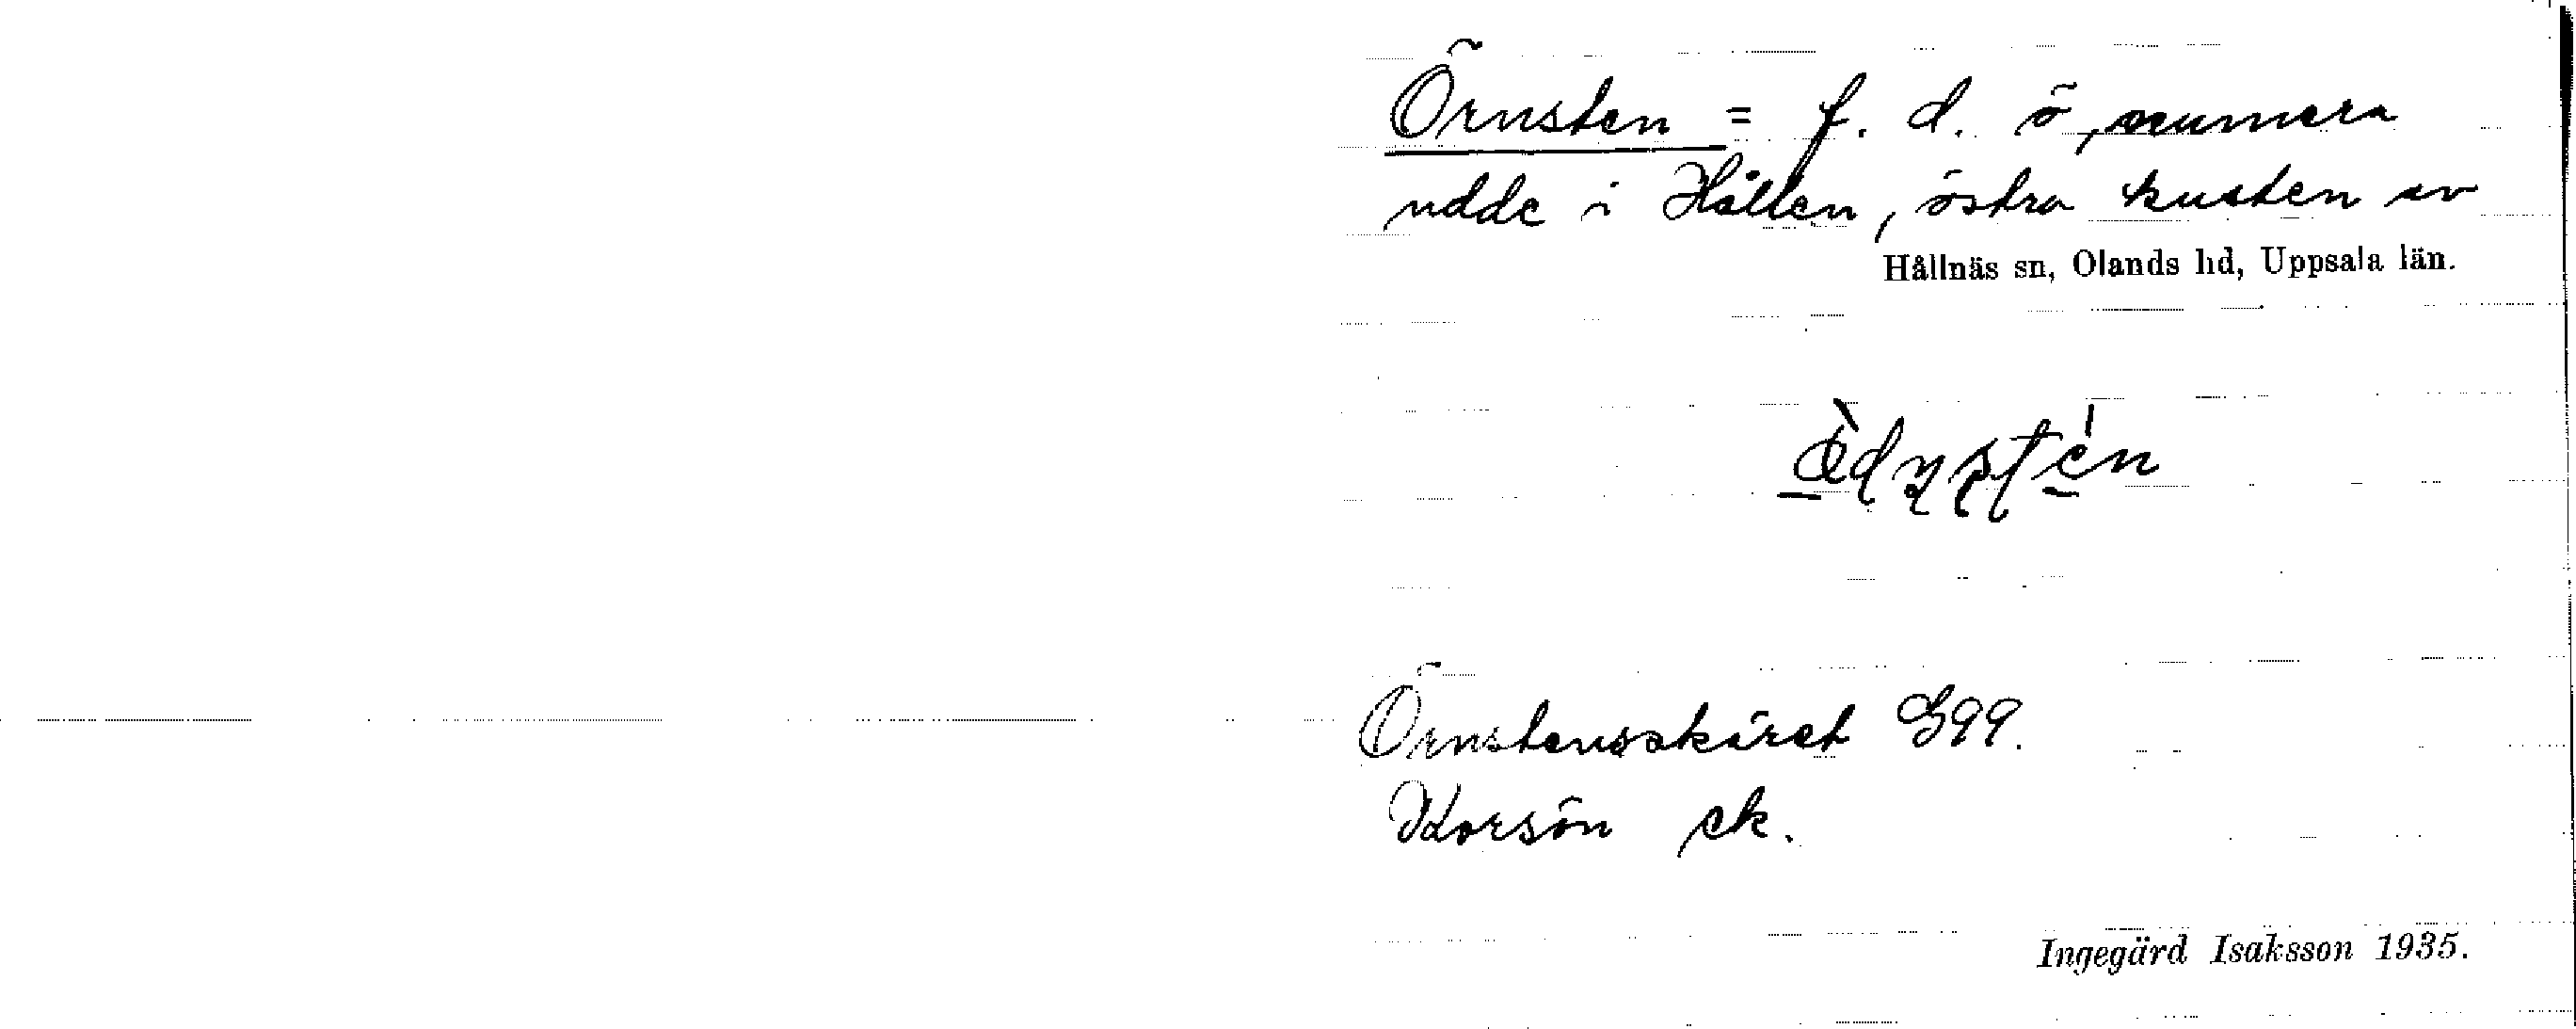 Örnsten = f. d. ö, numera
udde i Hållen, östra kusten av
Hållnäs sn, Olands hd, Uppsala län.
Örnstensskäret G99.
Korsön ek.
Ingegärd Isaksson 1935.